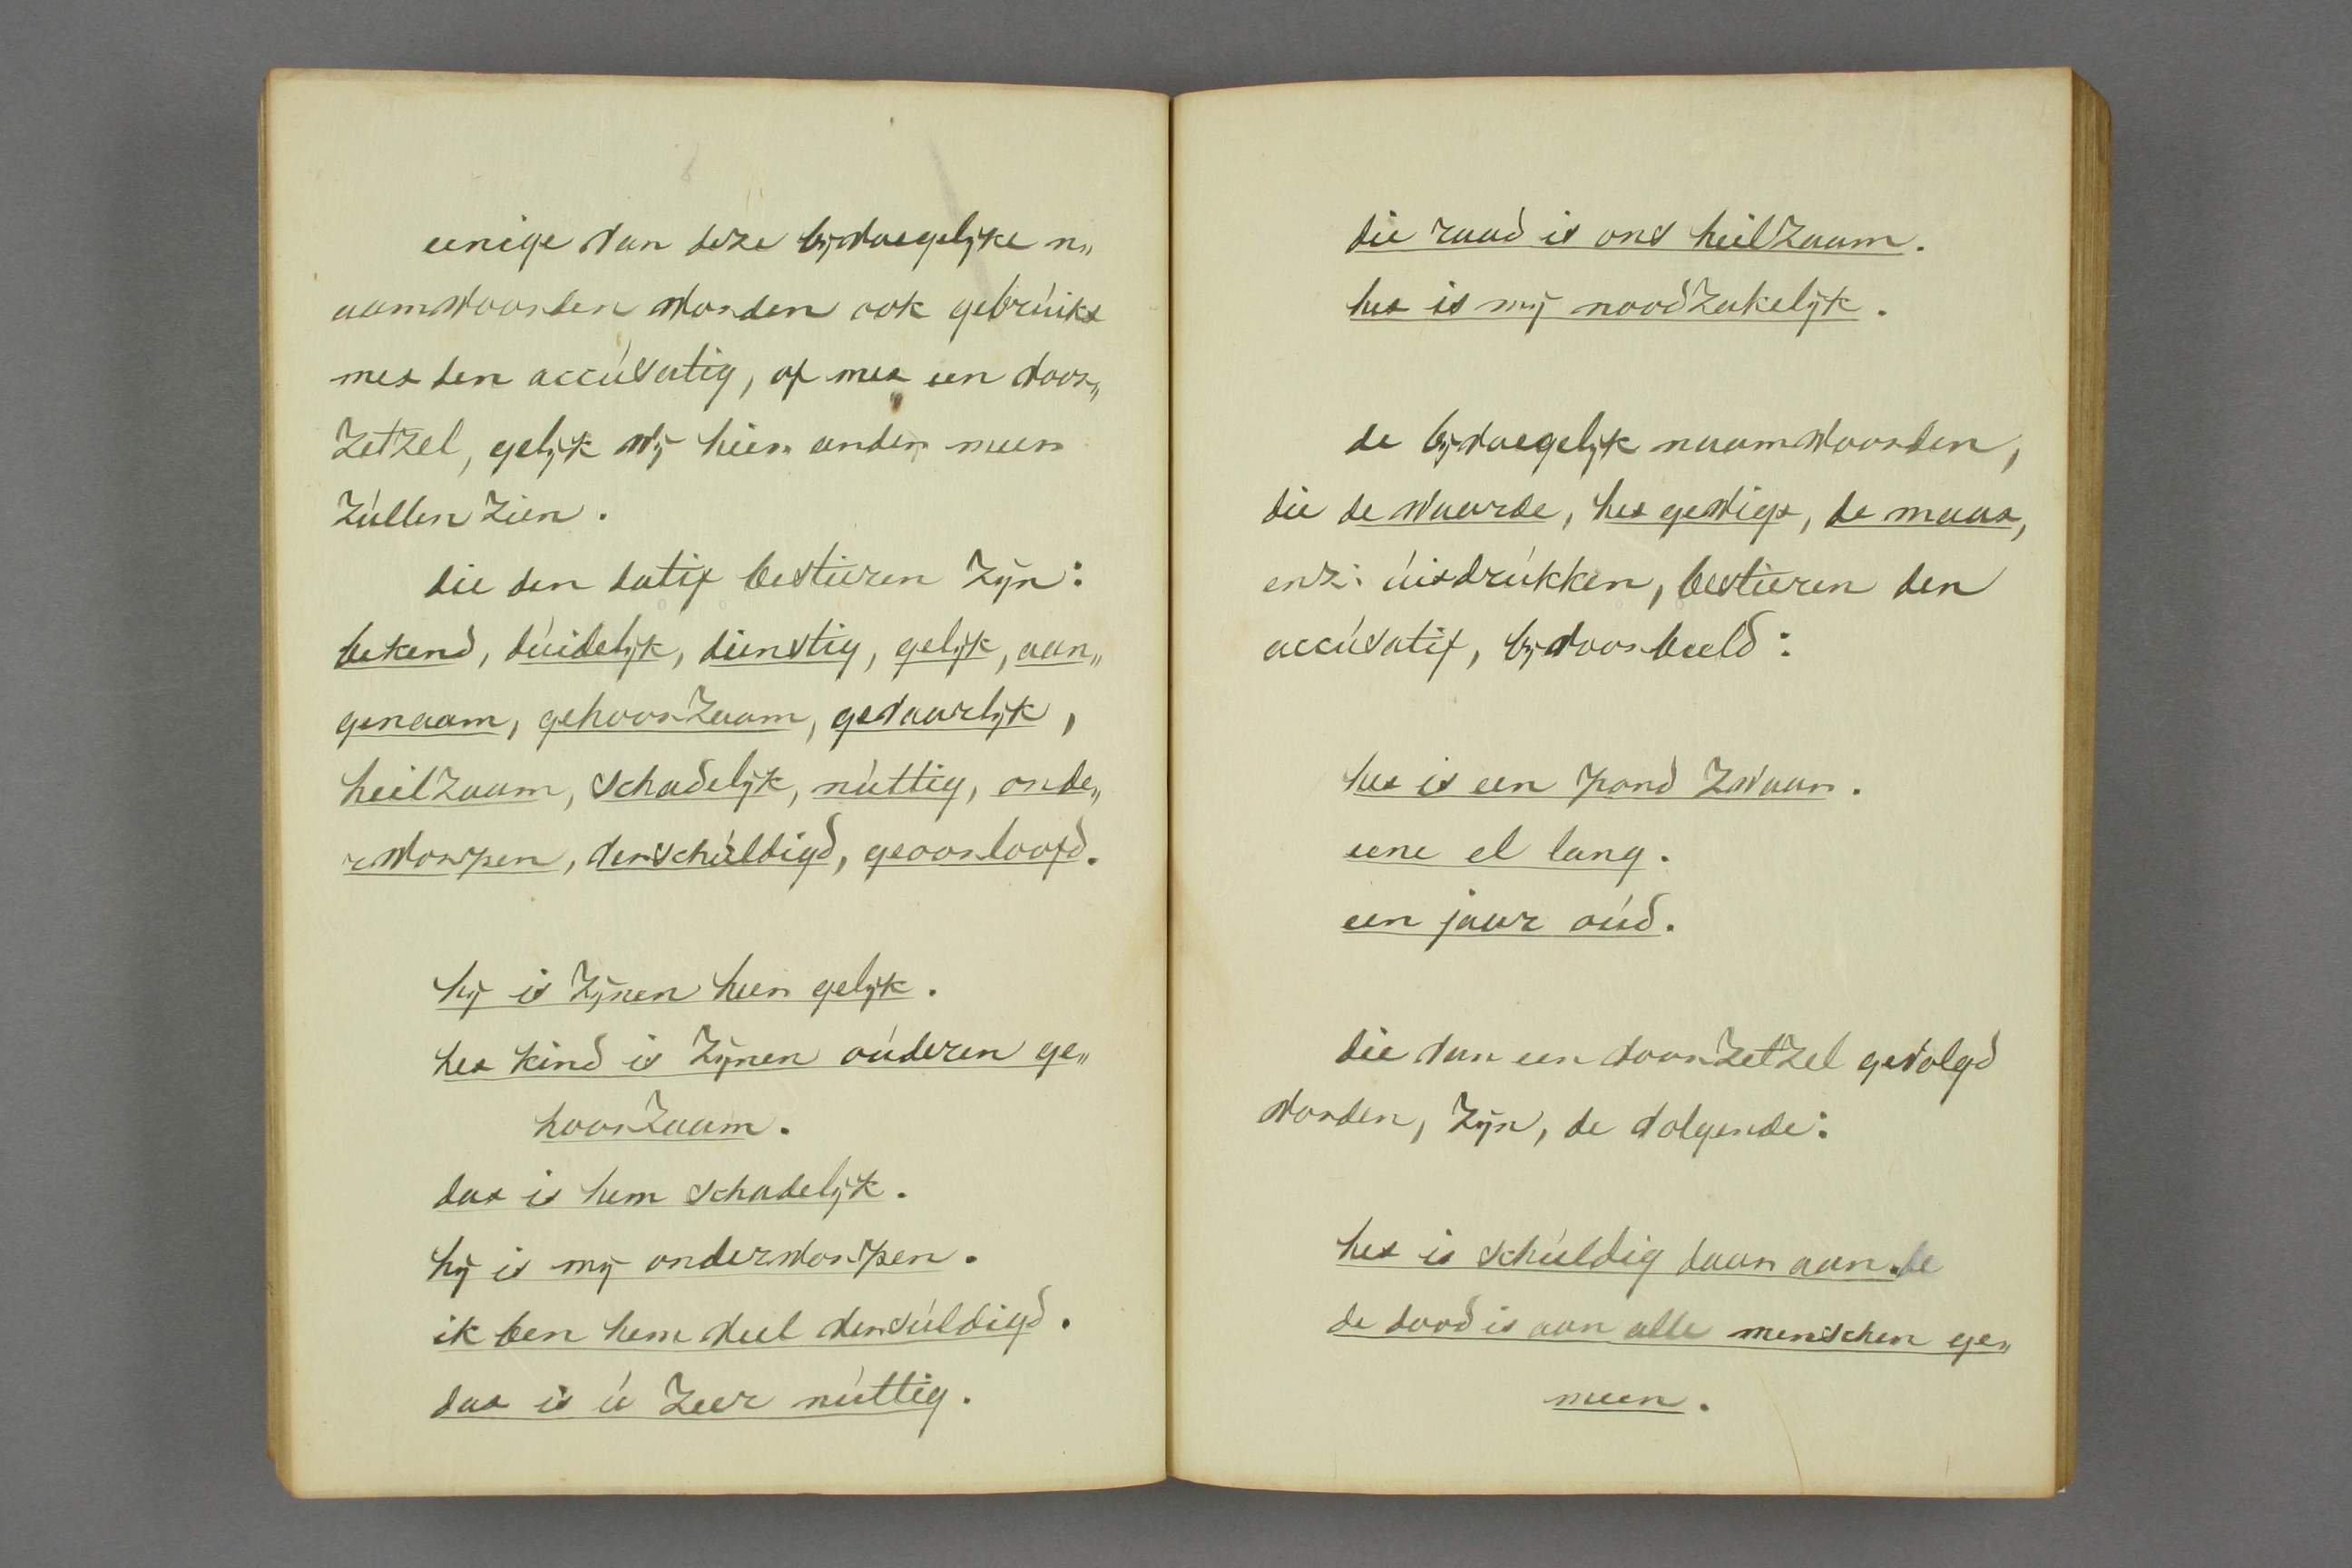 eenige van deze bijvoegelijke n„
aamwoorden worden ook gebrúikt
met den accúsatig, of met een voor„
zetzel, gelijk wij hier onder meer
zúllen zien.
die den datif bestieren zijn:
bekend, dúidelijk, dienstig, gelijk, aan„
genaam, gehoorzaam, gevaarlijk,
heilzaam, schadelijk, núttig, onde„
rworpen, verschúldigd, geoorloofd.
hij is zijnen heer gelijk.
het kind is zijnen oúderen ge„
hoorzaam.
dat is hem schadelijk.
hij is mij onderworpen.
ik ben hem veel versúldigd.
dat is ú zeer núttig.
die raad is ons heilzaam.
het is mij noodzakelijk.
de bijvoegelijk naamwoorden,
die de waarde, het gewigt, de maat,
enz: úitdrúkken, bestieren den
accúsatif, bijvoorbeeld:
het is een pond zwaar.
eene el lang.
een jaar oúd.
die van een voorzetzel gevolgd
worden, zijn, de volgende:
het is schúldig daar aan. de
de dood is aan alle menschen ge„
meen.